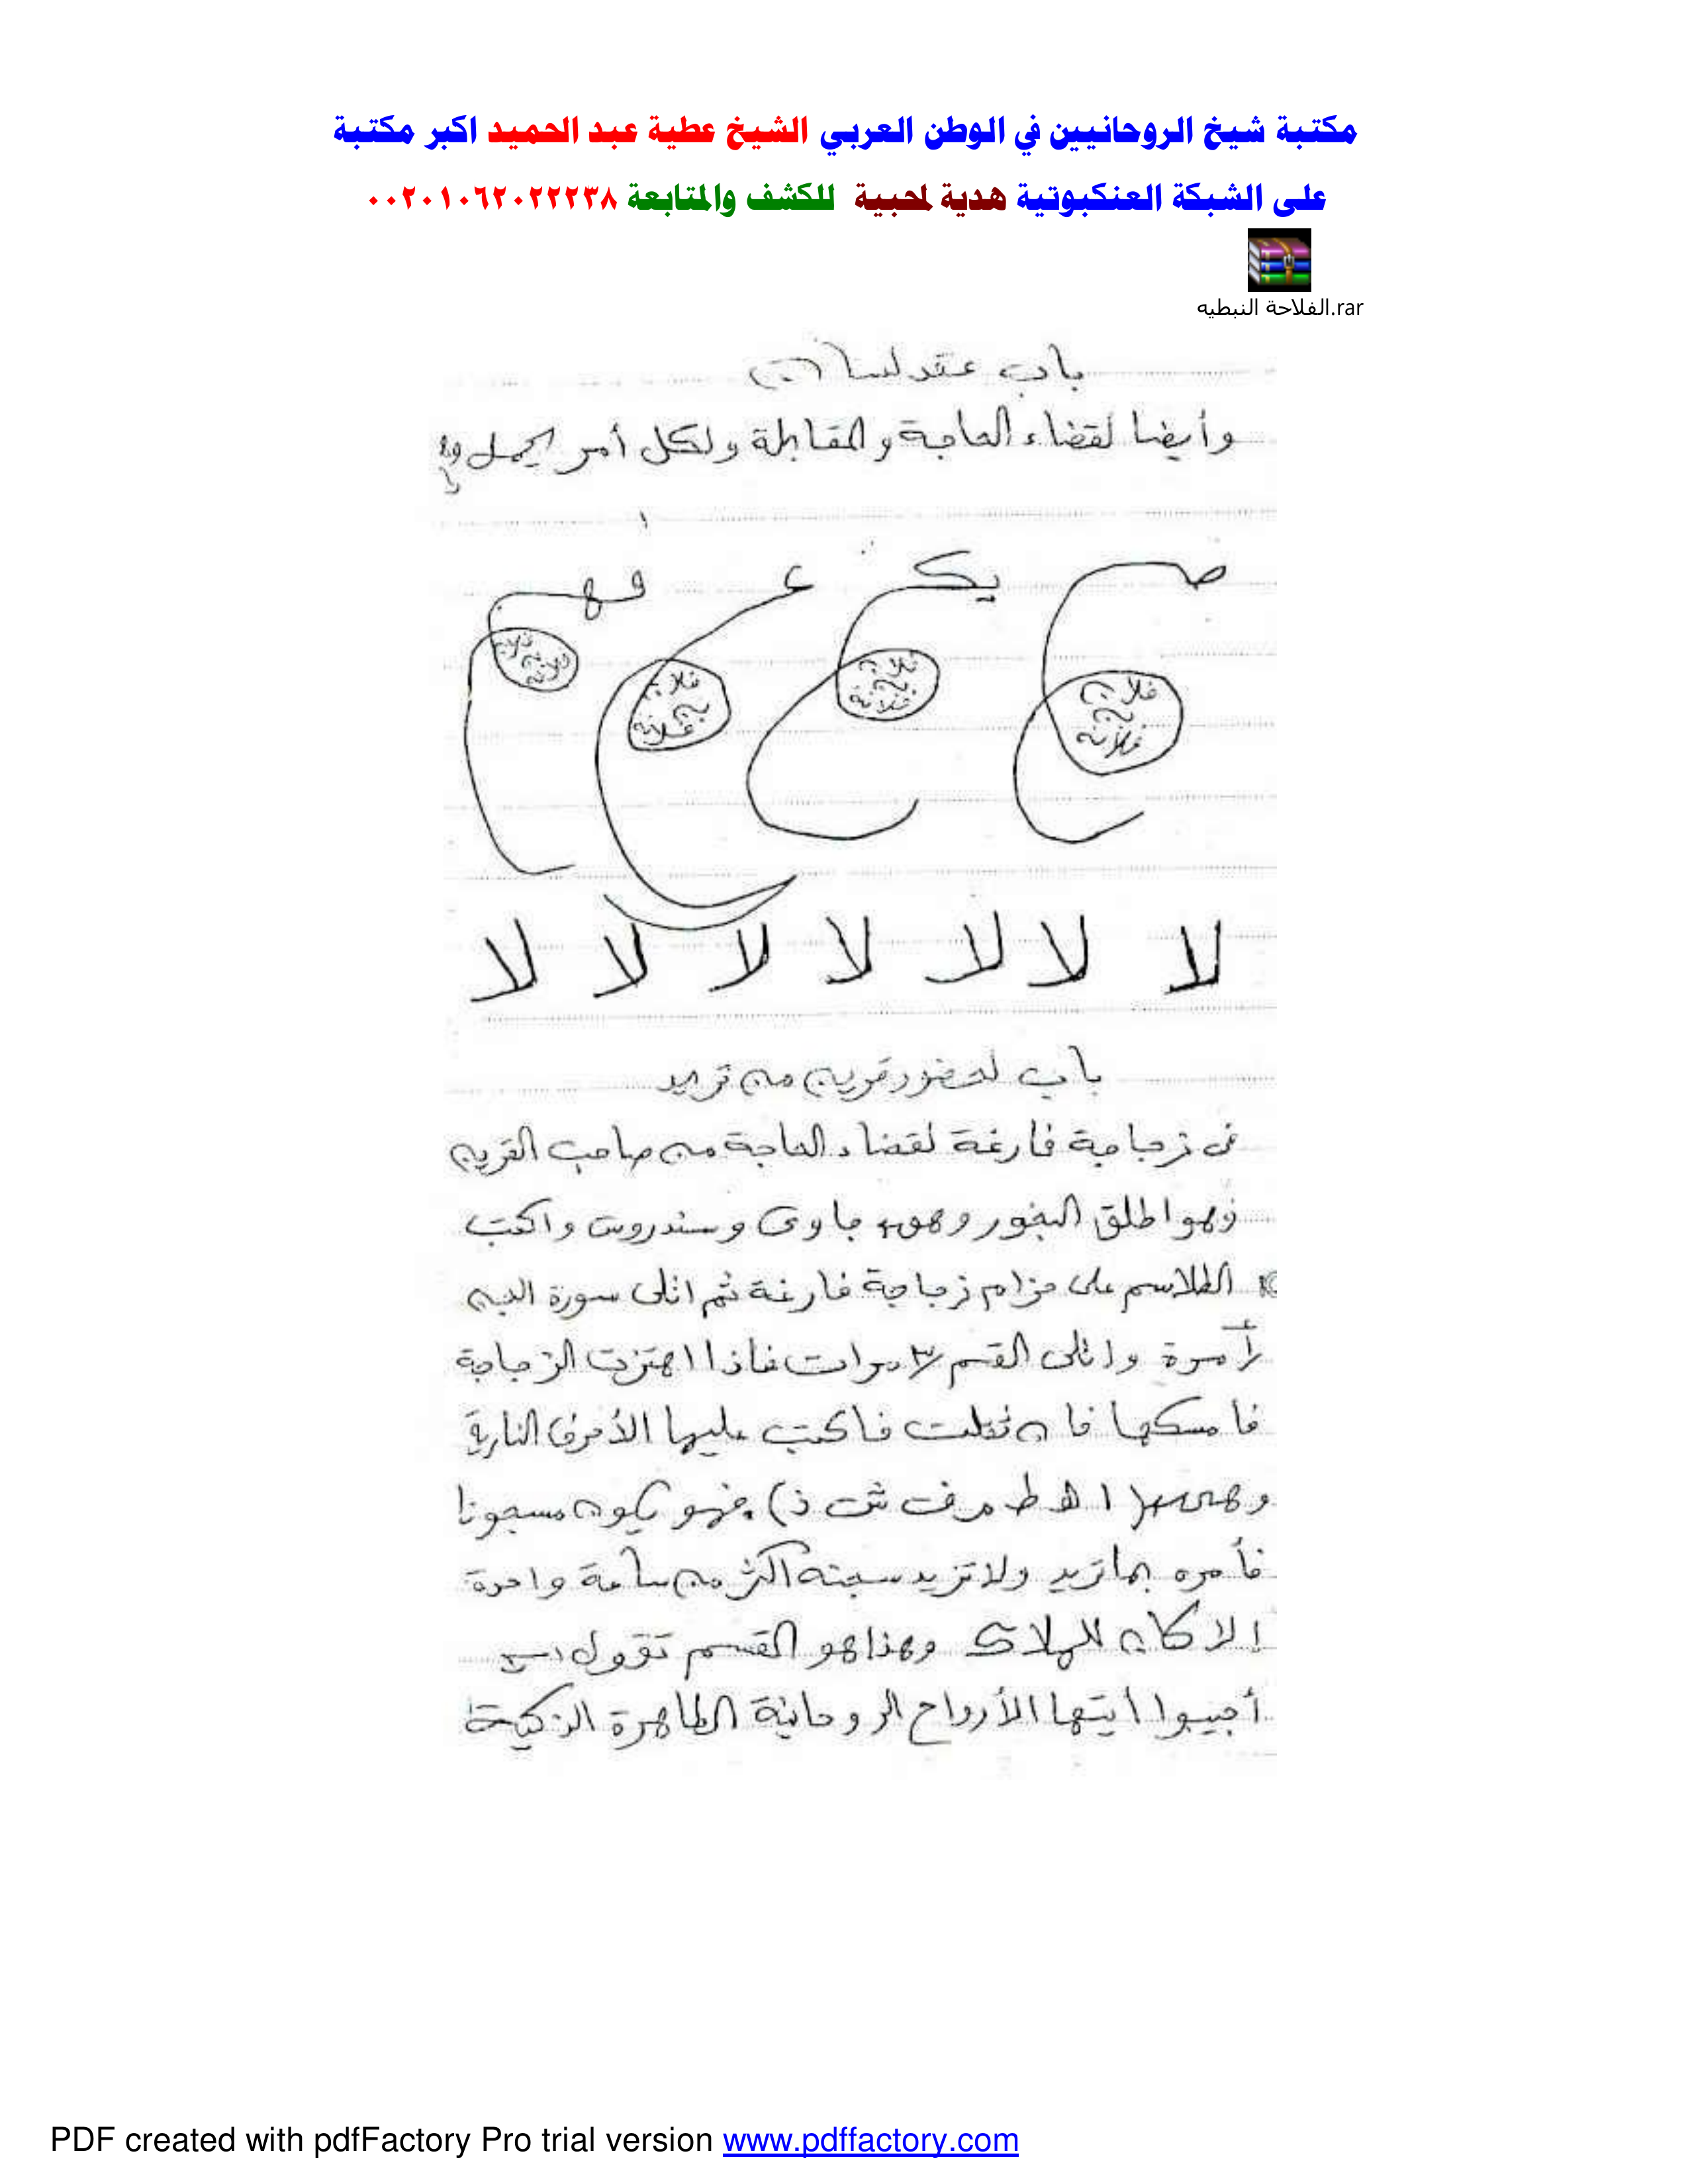 مكتبة شيخ الروحانيين في الوطن العربي الشيخ عطية عبد الحميد اكبر مكتبة
على الشبكة العنكبوتية هدية لمحبية للكشف والمتابعة ٠٠٢٠١٠٦٢٠٢٢٢٣٨
الفلاحة النبطيه.rar
باب عقد لسان
وأيضا لقضاء الحاجة والمقابلة ولكل أمر يحمل
صـ يكـ عـ فهـ
فلان بن فلانة فلان بن فلانة فلان بن فلانة فلان بن فلانة
لا لا لا لا لا لا لا
باب لحضور قرين من تريد
فى زجاجة فارغة لقضاء الحاجة من صاحب القرين
فهو اطلق البخور وهو جاوى وسندروس واكتب
الطلاسم على حزام زجاجة فارغة ثم اتلى سورة الجن
مرة واتلى القسم ٣ مرات فاذا اهتزت الزجاجة
فامسكها فان ثقلت فاكتب عليها الأحرف النارية
وهى (ا هـ ط م ف ش ذ) فهو يكون مسجونا
فأمره بما تريد ولا تزيد سجنه اكثر من ساعة واحدة
الا كان للهلاك وهذا هو القسم تقول
أجيبوا أيتها الأرواح الروحانية الطاهرة الزكية
PDF created with pdfFactory Pro trial version www.pdffactory.com